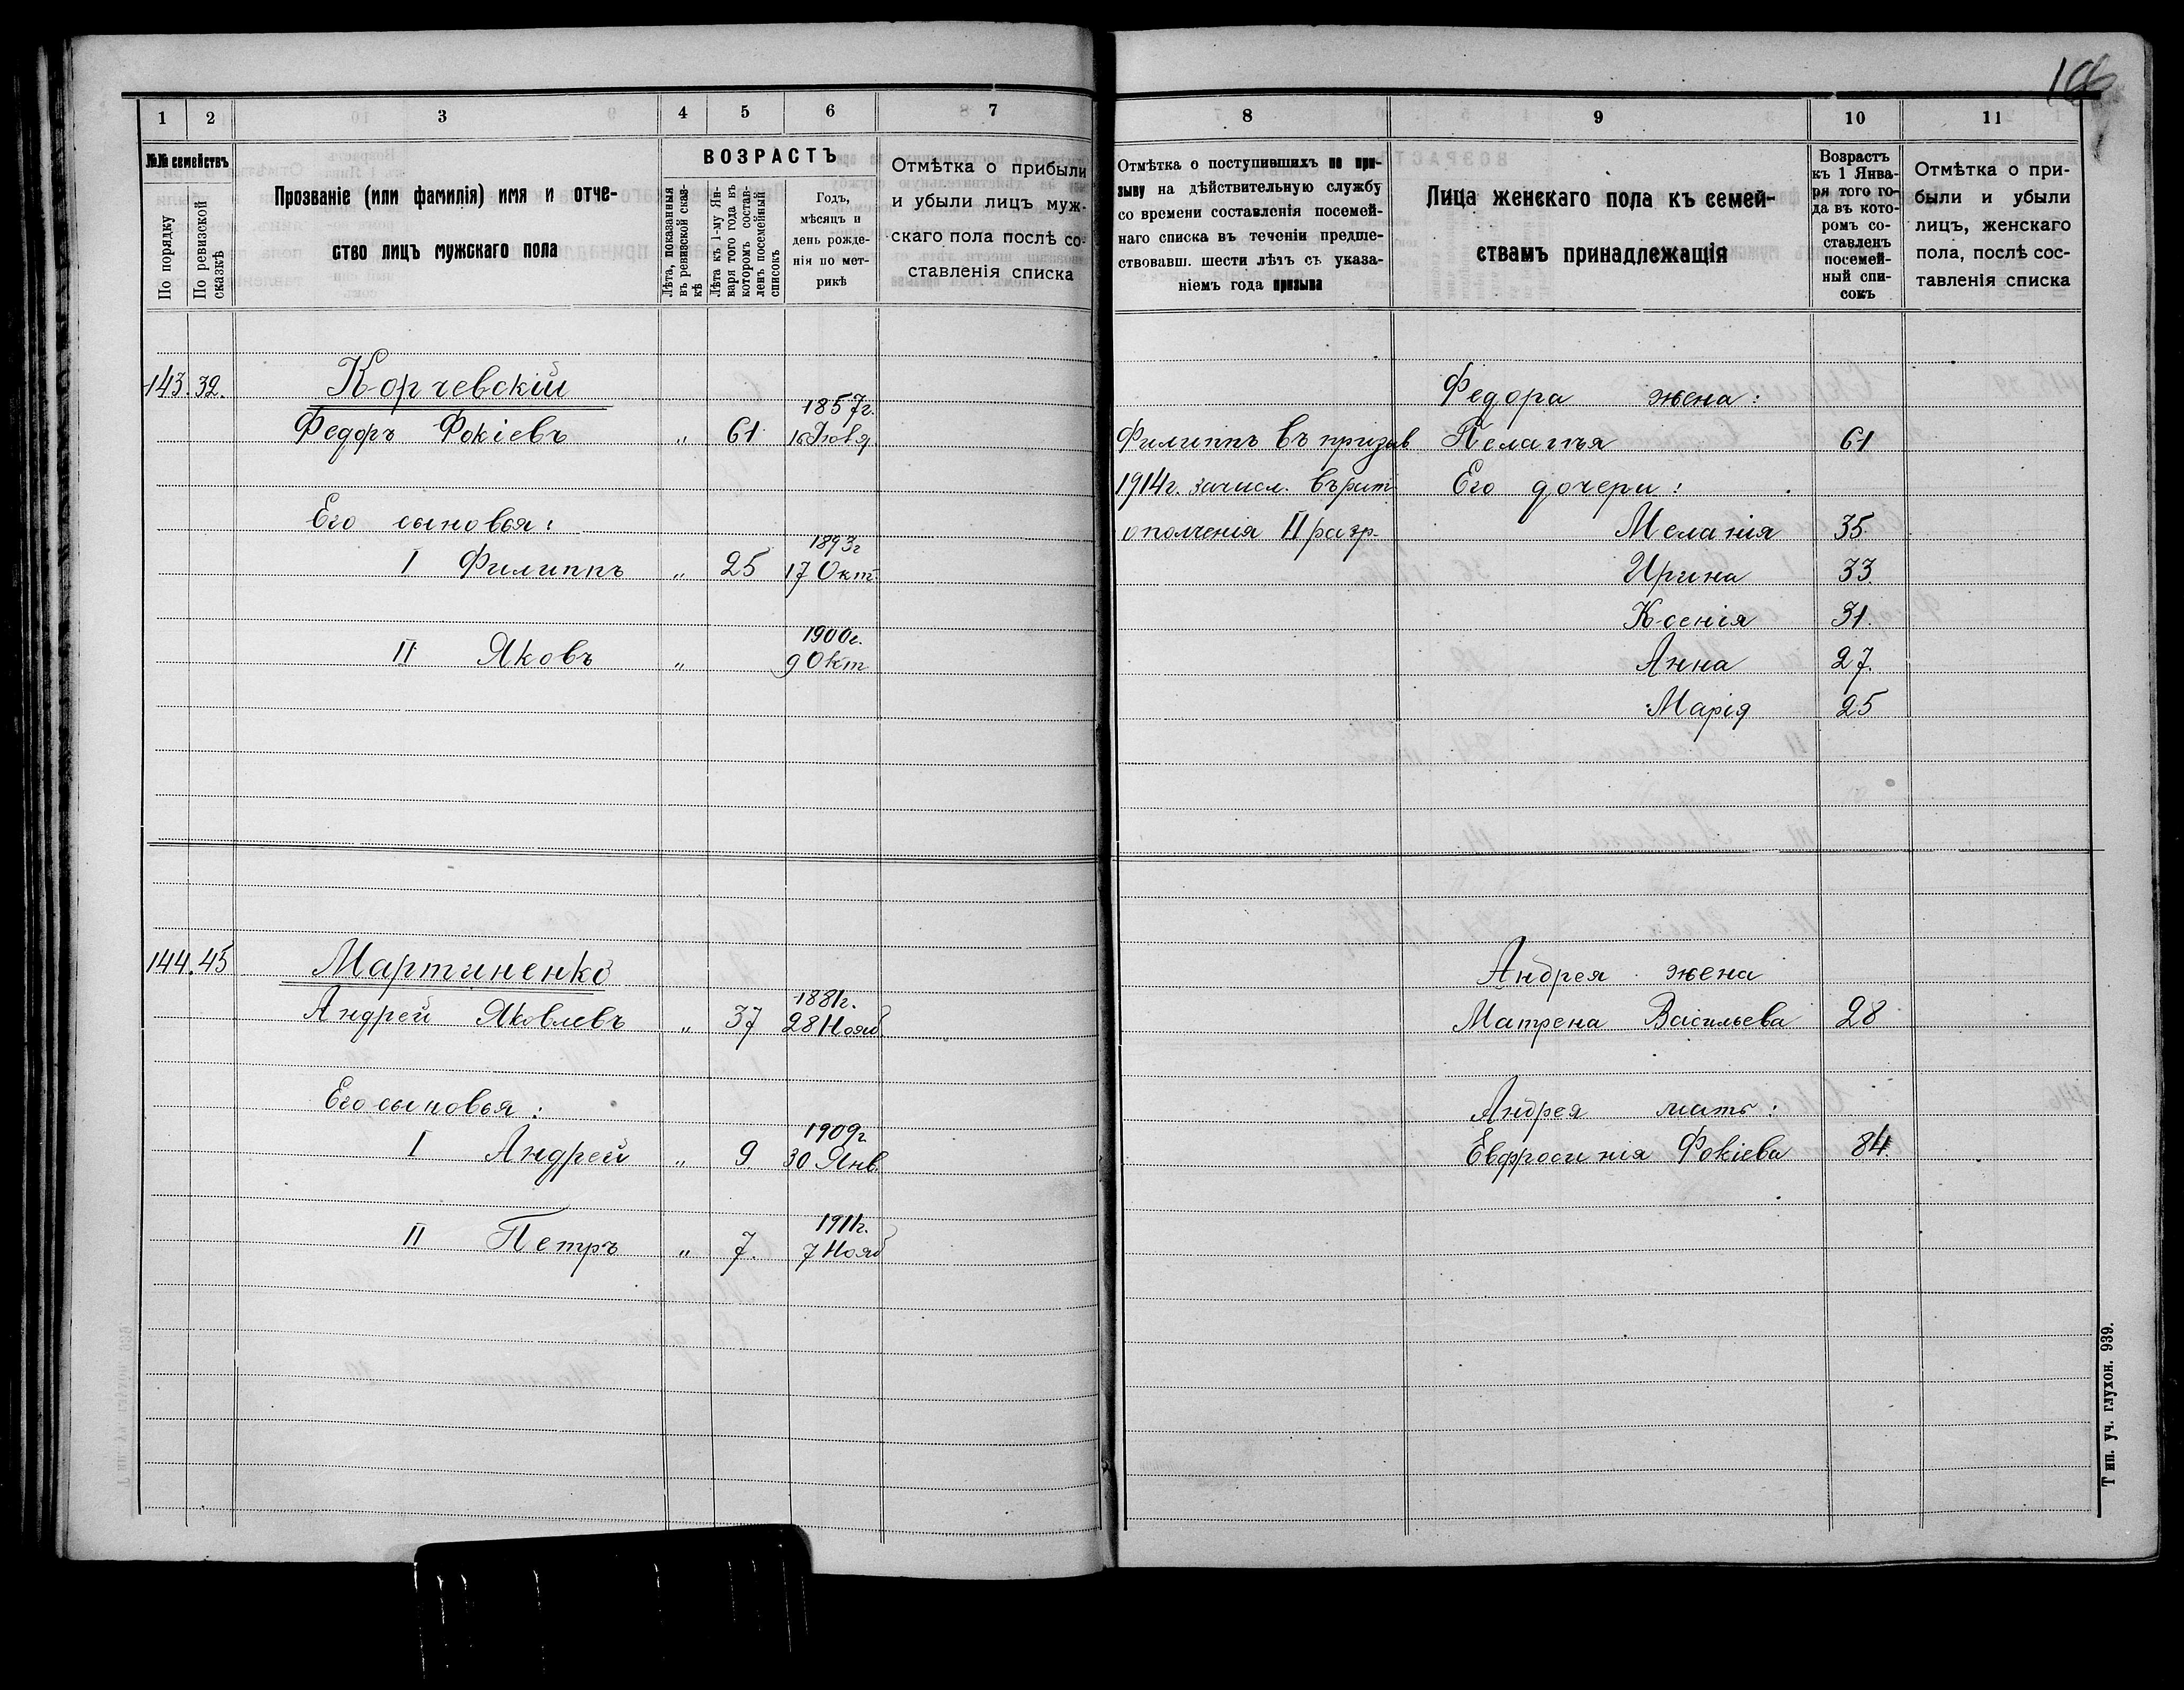 166
1 2 3 4 5 6 7
№№ семействъ
По порядку
По ревизской сказкѣ
Прозваніе (или фамилія) имя и отче-
ство лицъ мужскаго пола
ВОЗРАСТЪ
Лѣта, показанныя
въ ревизской сказ-
кѣ
Лѣта къ 1-му Ян-
варя того года въ
которомъ состав-
ленъ посемейный
списокъ
Годъ,
мѣсяцъ и
день рожде-
нія по мет-
рикѣ
Отмѣтка о прибыли
и убыли лицъ муж-
скаго пола послѣ со-
ставленія списка
143. 32. Корчевскій
1857г.
Федоръ Фокіевъ " 61 16 Іюля
Его сыновья:
1893г
I Филиппъ " 25 17 Окт.
1900г.
II Яковъ " 9 Окт
144. 45 Мартиненко
1881г.
Андрей Яковлевъ " 37 28 Нояб
Его сыновья:
1909г
I Андрей " 9 30 Янв
1911г.
II Петръ " 7. 7 Нояб
8 9 10 11
Отмѣтка о поступившихъ по при-
зыву на дѣйствительную службу
со времени составленія посемей-
наго списка въ теченіи предше-
ствовавш. шести лѣтъ съ указа-
ніемъ года призыва
Лица женскаго пола къ семей-
ствамъ принадлежащія
Возрастъ
къ 1 Янва-
ря того го-
да въ кото-
ромъ со-
ставленъ
посемей-
ный спи-
сокъ
Отмѣтка о при-
были и убыли
лицъ, женскаго
пола, послѣ сос-
тавленія списка
Федора жена:
Филиппъ въ призыв Пелагья 61
1914г. зачисл. въ рат Его дочери:
ополченія II разр. Меланія 35.
Ирина 33.
Ксенія 31.
Анна 27.
Марія 25
Андрея жена
Матрена Васильева 28
Андрея мать:
Евфросинія Фокіева 84.
Тип. уч. глухон. 939.